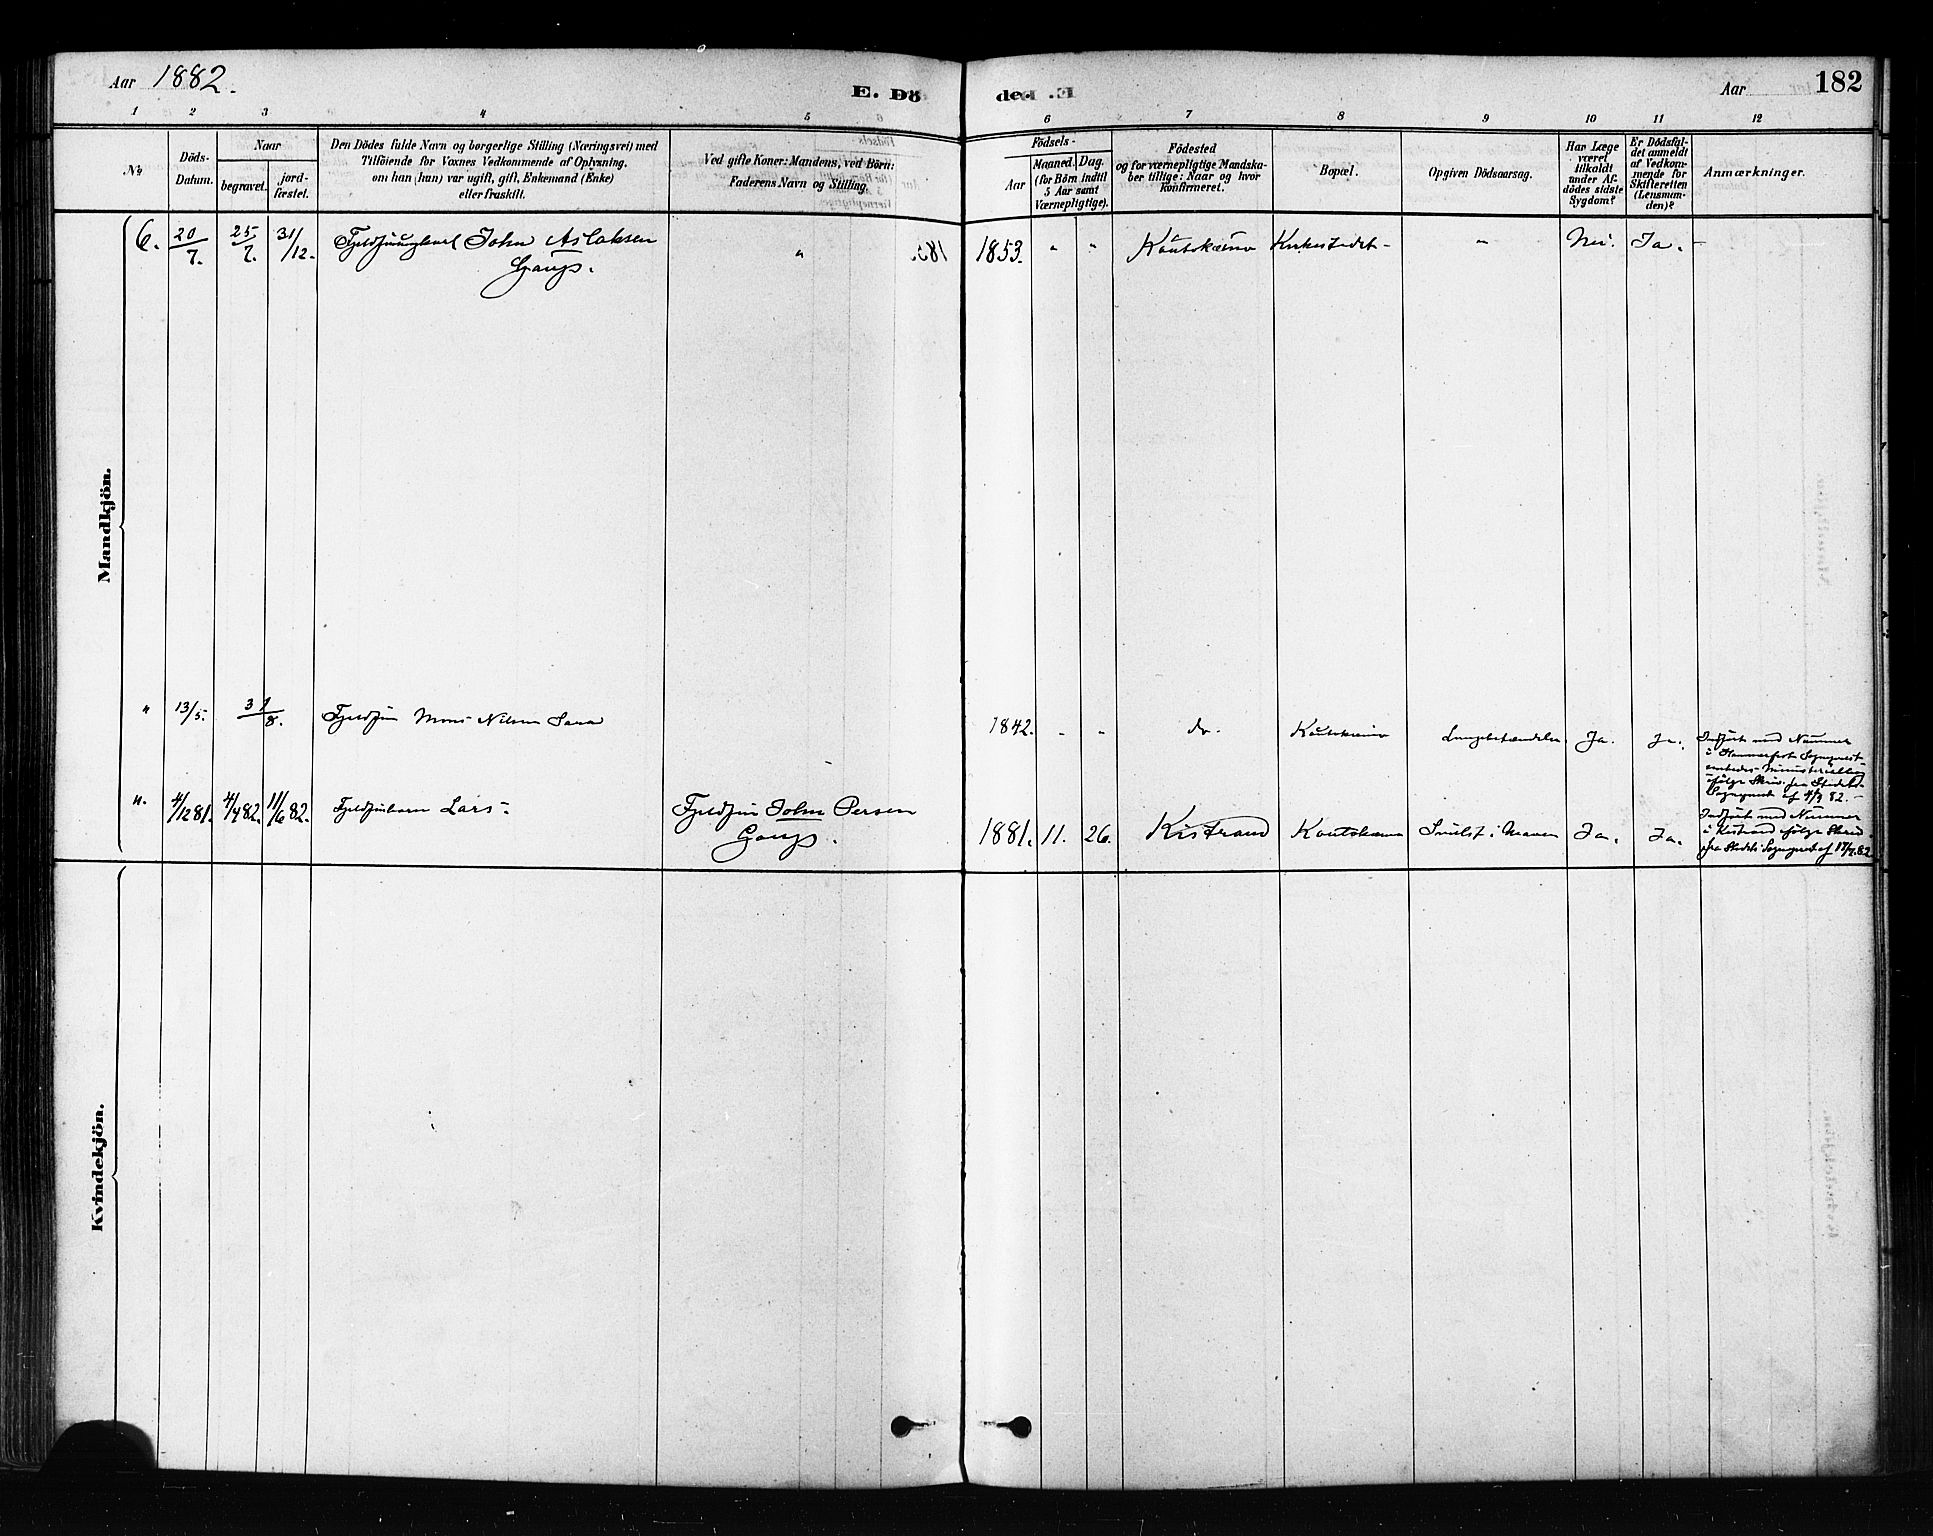 Aar 1882.
E. Dö
de.
Aar
182
1 2 3 4 5 6 7 8 9 10 11 12
No
Döds-
Datum.
Naar
begravet.
jord-
fæstet.
Den Dödes fulde Navn og borgerlige Stilling (Næringsvei) med
Tilföiende for Voxnes Vedkommende af Oplysning.
om han (hun) var ugift, gift, Enkemand (Enke)
eller fraskilt.
Ved gifte Koner: Mandens, ved Börn:
Faderens Navn og Stilling.
Födsels-
Aar
Maaned. Dag.
(for Börn indtil
5 Aar samt
Værnepligtige).
Födested
og for værnepligtige Mandska-
ber tillige: Naar og hvor
Konfirmeret.
Bopæl.
Opgiven Dödsaarsag.
Han Læge
været
tilkaldt
under Af-
dödes sidste
Sygdom?
Er Dödsfal-
det anmeldt
af Vedkom-
mende for
Skifteretten
(Lensman-
den)?
Anmærkninger.
Mandkjön.
6. 20/7. 25/7. 31/12. John Aslaksen " 1853. " " Koutokæino Kirkestedet - " Nei. Ja. -
Gaup.
" 13/5. 31/8. Fjeldfin Mons Nilsen Sara 1842. " " do. Koutokæino Lungebetændelse Ja. Ja. Indført med Nummer
i Hammerfest
Sognepræst af 4/9 82. -
". 4/12 81. 4/4 82. 11/6 82. Fjeldfinbarn Lars - Fjeldfin John Persen 1881. 11. 26. Kistrand Koutokæino Svulst i Maven Ja. Ja. Indført med Nummer
Gaup.
i Kistrand ifølge Skriv.
fra Stedets Sognepræst af 17/7.82.
Kvindekjön.